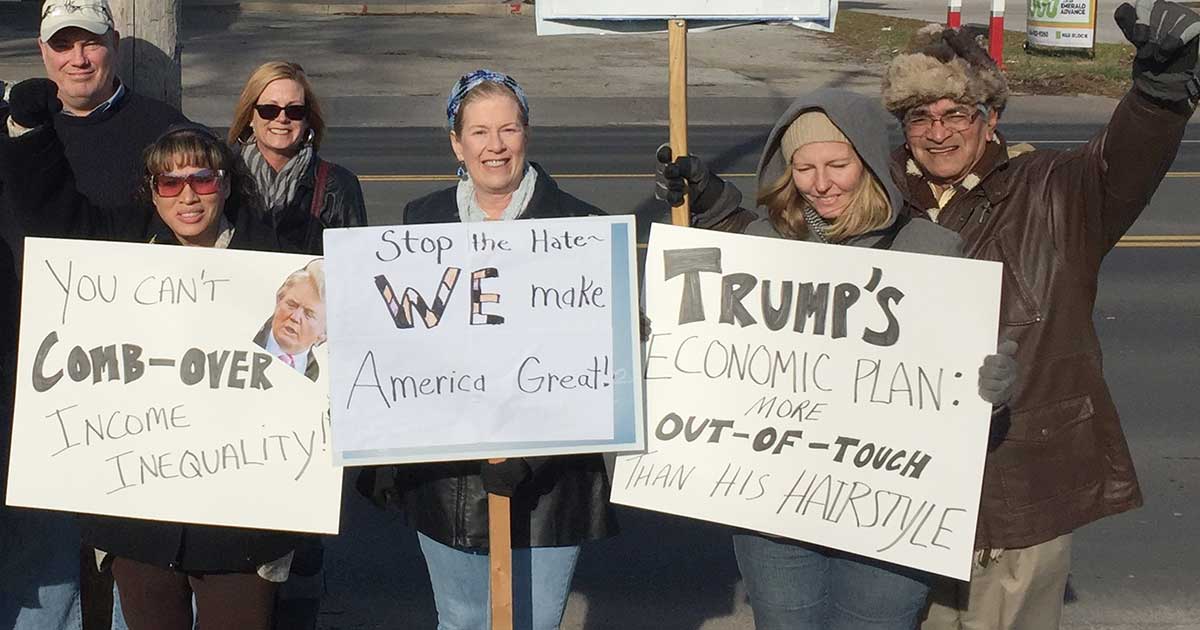 EMERALD
ADVANCE
YOU CAN'T
COMB-OVER
INCOME
INEQUALITY!
Stop the Hate~
WE make
America Great!
TRUMP'S
ECONOMIC PLAN:
MORE
OUT-OF-TOUCH
THAN HIS HAIRSTYLE